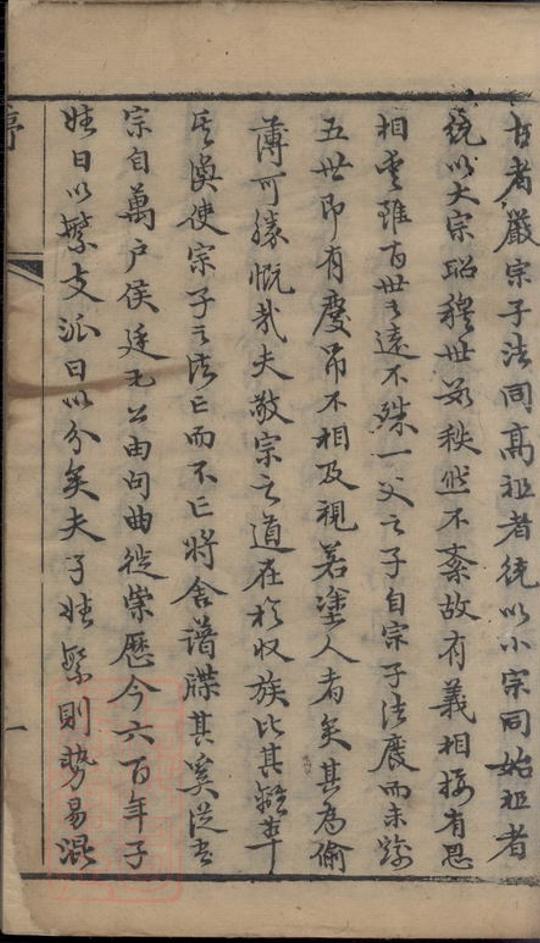 古者嚴宗子法同高祖者統以小宗同始祖者
統以大宗昭穆世次秩然不紊故有義相接有恩
相愛雖百世之遠不殊一父之子自宗子法廢而未踰
五世即有慶吊不相及視若塗人者矣其為偷
薄可勝慨哉夫敬宗之道在於收族比其離萃
其渙使宗子之法亡而不亡將舍譜牒其奚從吾
宗自萬户侯廷元公由句曲徙崇歷今六百年子
姓日以繁支派日以分矣夫子姓繁則勢易混
序
一